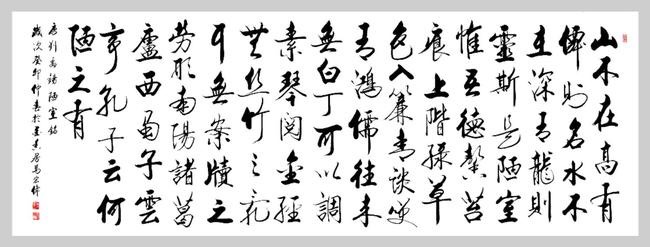 山不在高有
僊則名水不
在深有龍則
靈斯是陋室
惟吾德馨苔
痕上階綠草
色入簾青談笑
有鴻儒往來
無白丁可以調
素琴閱金經
無絲竹之亂
耳無案牘之
勞形南陽諸葛
廬西蜀子雲
亭孔子云何
陋之有
唐刘禹錫陋室銘
歲次癸卯仲春於